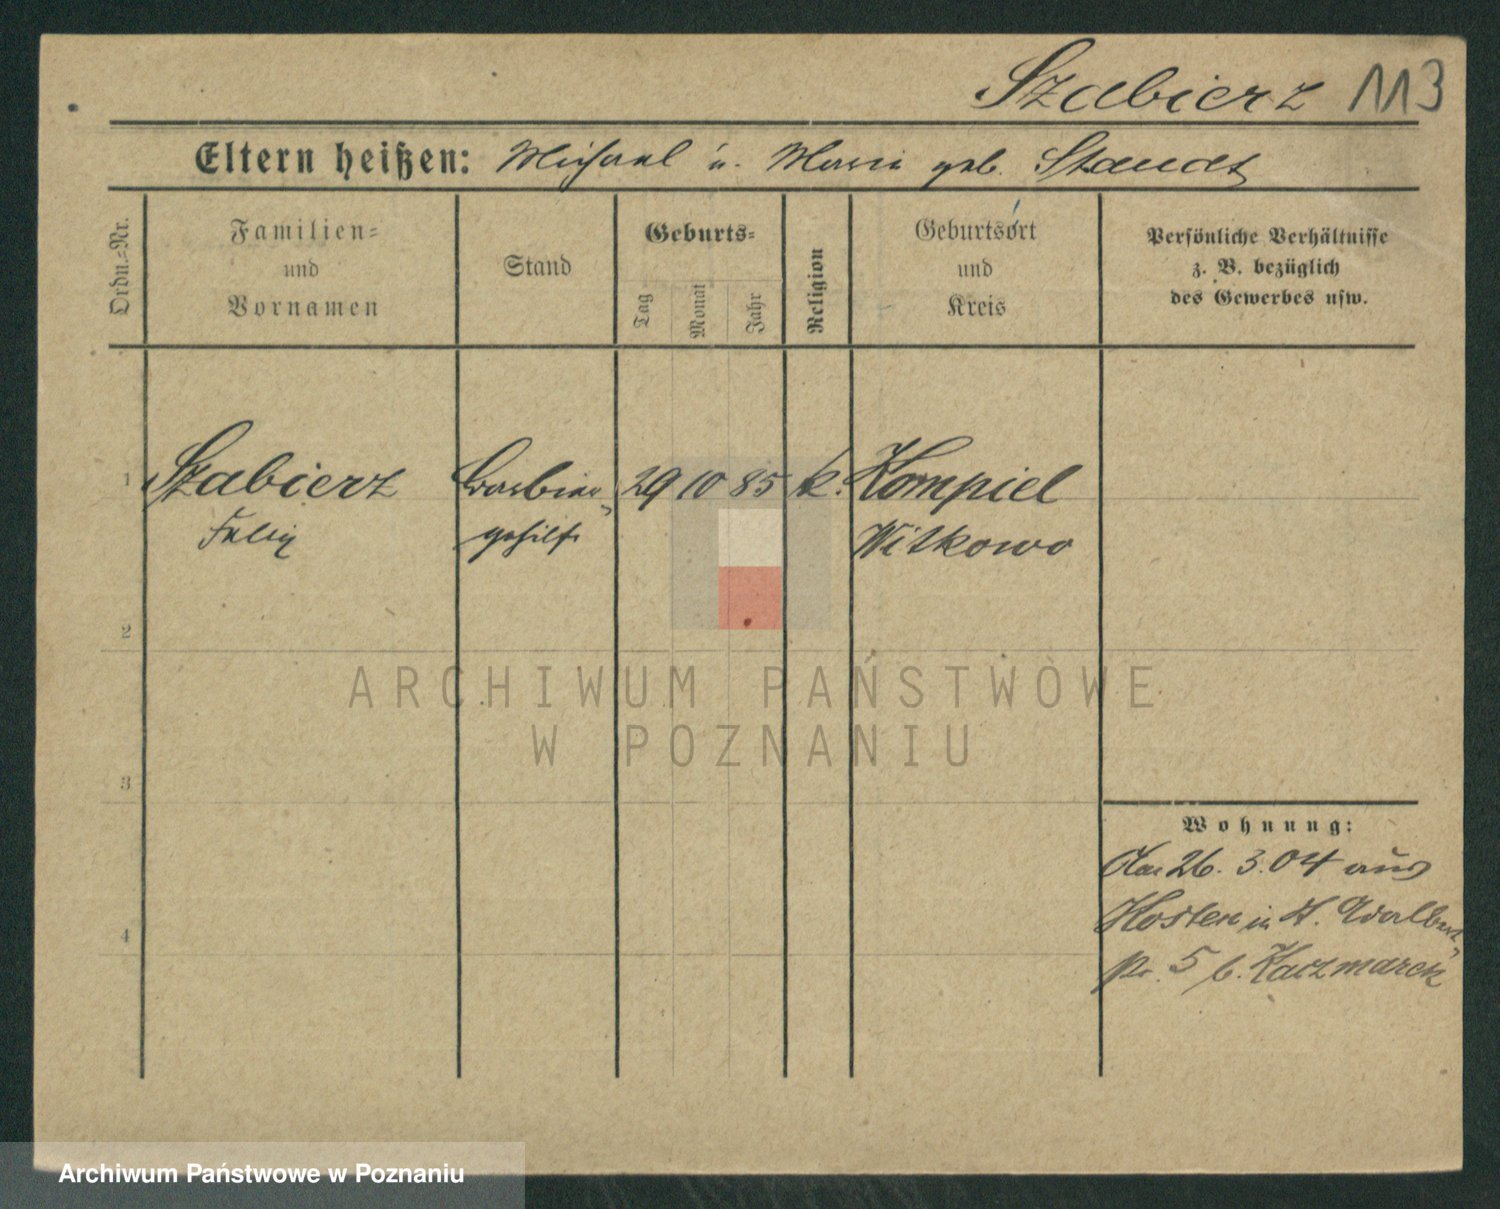 Szabierz 113
Eltern heißen: Michael u. Marie geb. Staudt
Ordn.-Nr.
Familien- und Vornamen
Stand
Geburts-
Tag
Monat
Jahr
Religion
Geburtsort und Kreis
Persönliche Verhältnisse
z. B. bezüglich
des Gewerbes usw.
1 Szabierz Barbier- 29 10 85 k. Kompiel
Felix gehilfe Witkowo
2
3
4
Wohnung:
Am 26. 3. 04 aus
Kosten in St. Adalbert-
5 b. Kaczmarek
ARCHIWUM PAŃSTWOWE
W POZNANIU
Archiwum Państwowe w Poznaniu